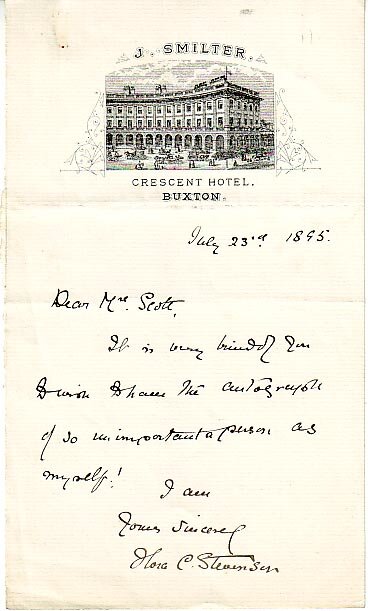 J. SMILTER.
CRESCENT HOTEL.
BUXTON.
July 23rd 1895.
Dear Mrs Scott,
It is very kind of you
to wish to have the autograph
of so unimportant a person as
myself!
I am
Yours sincerely
Flora C. Stevenson